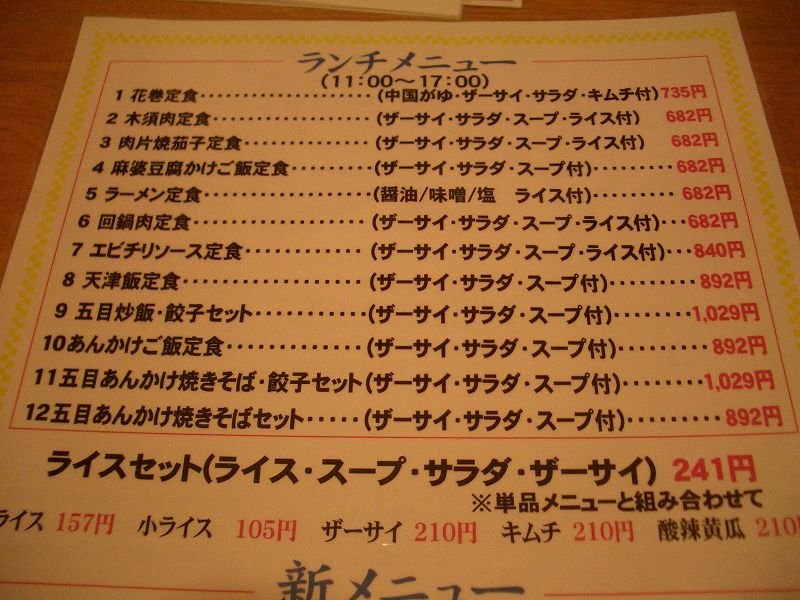 ランチメニュー
(11:00～17:00)
1 花巻定食・・・・・・・・・・・・・・・・・・・・(中国がゆ・ザーサイ・サラダ・キムチ付)735円
2 木須肉定食・・・・・・・・・・・・・・・・・・(ザーサイ・サラダ・スープ・ライス付) 682円
3 肉片焼茄子定食・・・・・・・・・・・・・・(ザーサイ・サラダ・スープ・ライス付) 682円
4 麻婆豆腐かけご飯定食・・・・・・・・(ザーサイ・サラダ・スープ付)・・・・・・・・・682円
5 ラーメン定食・・・・・・・・・・・・・・・・・(醤油/味噌/塩 ライス付)・・・・・・・・・682円
6 回鍋肉定食・・・・・・・・・・・・・・・・・・(ザーサイ・サラダ・スープ・ライス付)・・・682円
7 エビチリソース定食・・・・・・・・・・・・(ザーサイ・サラダ・スープ・ライス付)・・・840円
8 天津飯定食・・・・・・・・・・・・・・・・・・(ザーサイ・サラダ・スープ付)・・・・・・・・・892円
9 五目炒飯・餃子セット・・・・・・・・・・・(ザーサイ・サラダ・スープ付)・・・・・・・・1,029円
10あんかけご飯定食・・・・・・・・・・・・・(ザーサイ・サラダ・スープ付)・・・・・・・・・892円
11五目あんかけ焼きそば・餃子セット(ザーサイ・サラダ・スープ付)・・・・・・・・1,029円
12五目あんかけ焼きそばセット・・・・・(ザーサイ・サラダ・スープ付)・・・・・・・・・892円
ライスセット(ライス・スープ・サラダ・ザーサイ) 241円
※単品メニューと組み合わせて
ライス 157円 小ライス 105円 ザーサイ 210円 キムチ 210円 酸辣黄瓜 210
新メニュー